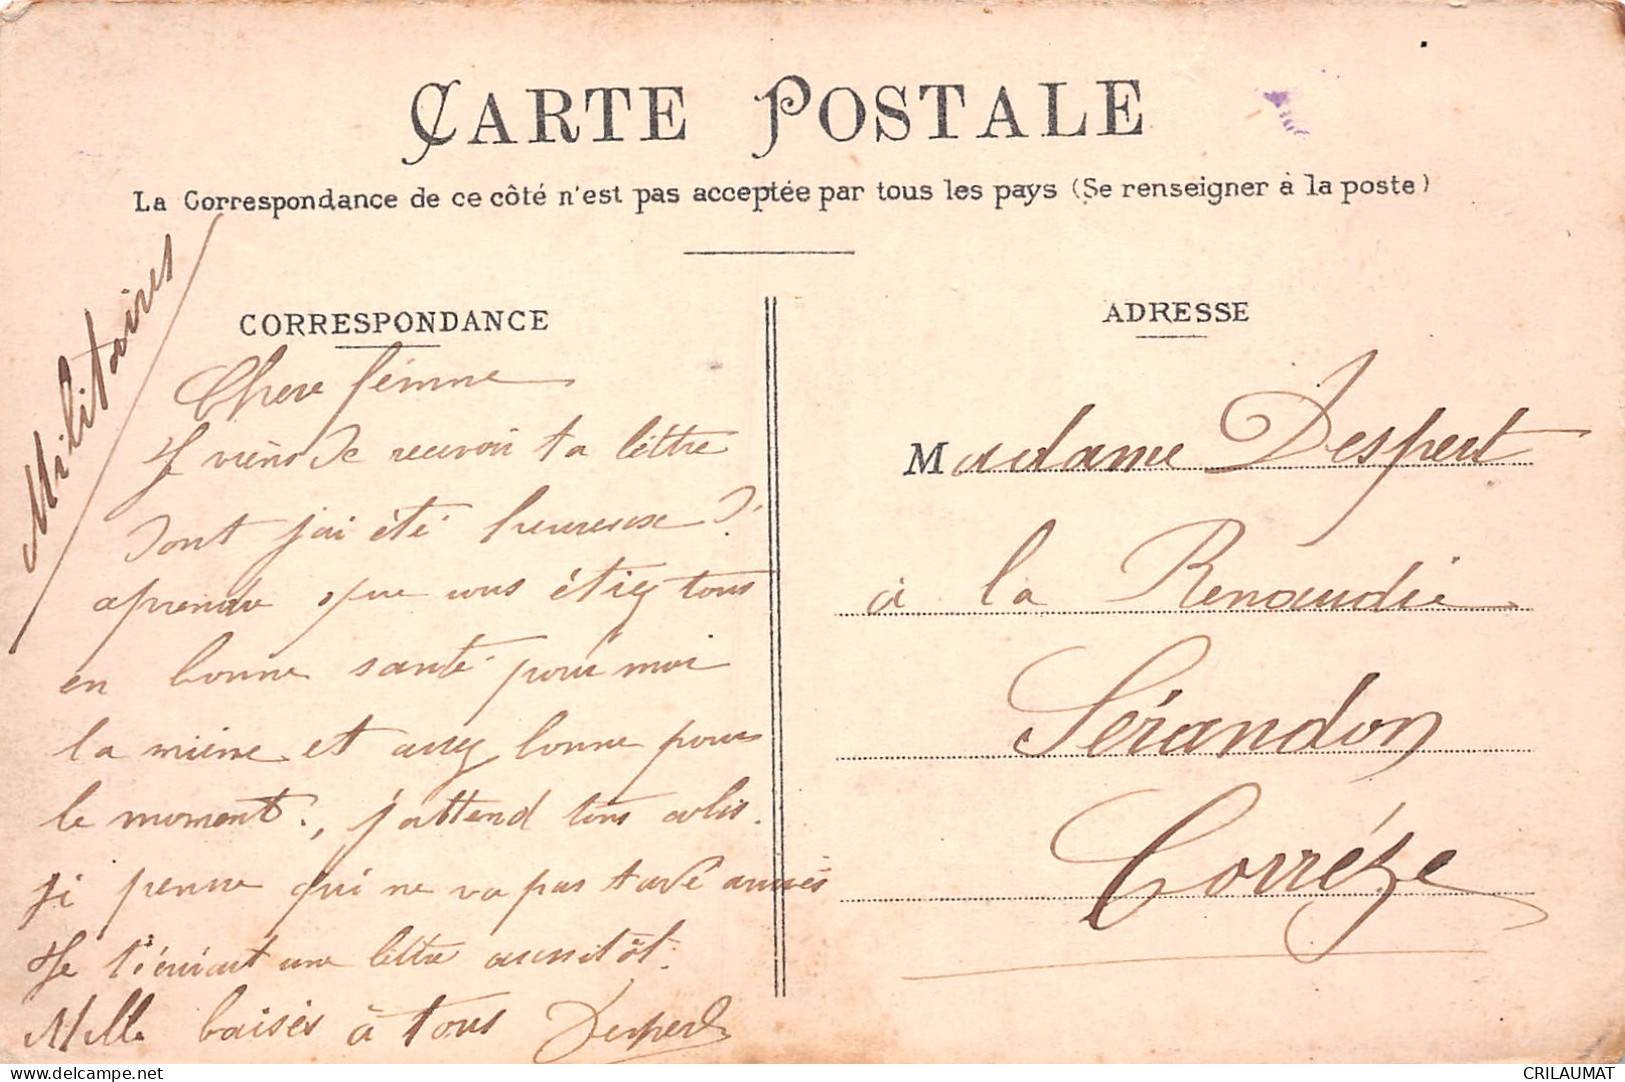 CARTE POSTALE
La Correspondance de ce côté n'est pas acceptée par tous les pays (Se renseigner à la poste)
Militaires
CORRESPONDANCE
Chere fémme
Je viens de recevoir ta lèttre
dont j'ai été heureuse d'
aprendre que vous étiez tous
en bonne santé pour moi
la mième et assez bonne pour
le moment, j'attend tous
ji pense qui ne va pas
Je t'écrirait une lèttre aussitôt.
Mille baisés à tous Despert
ADRESSE
Madame Despert
à la Renaudie
Sérandon
Corréze
CRILAUMAT
delcampe.net